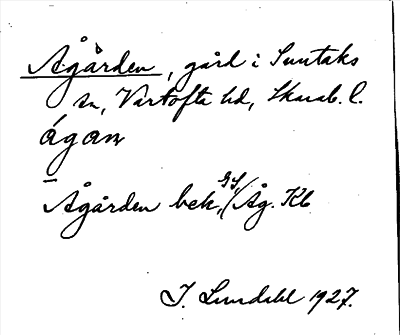 Ågården, gård i Suntaks
sn, Vartofta hd, Skarab. l.
ågan
Ågården bek, GS/Åg. Kb
I. Lundahl 1927.